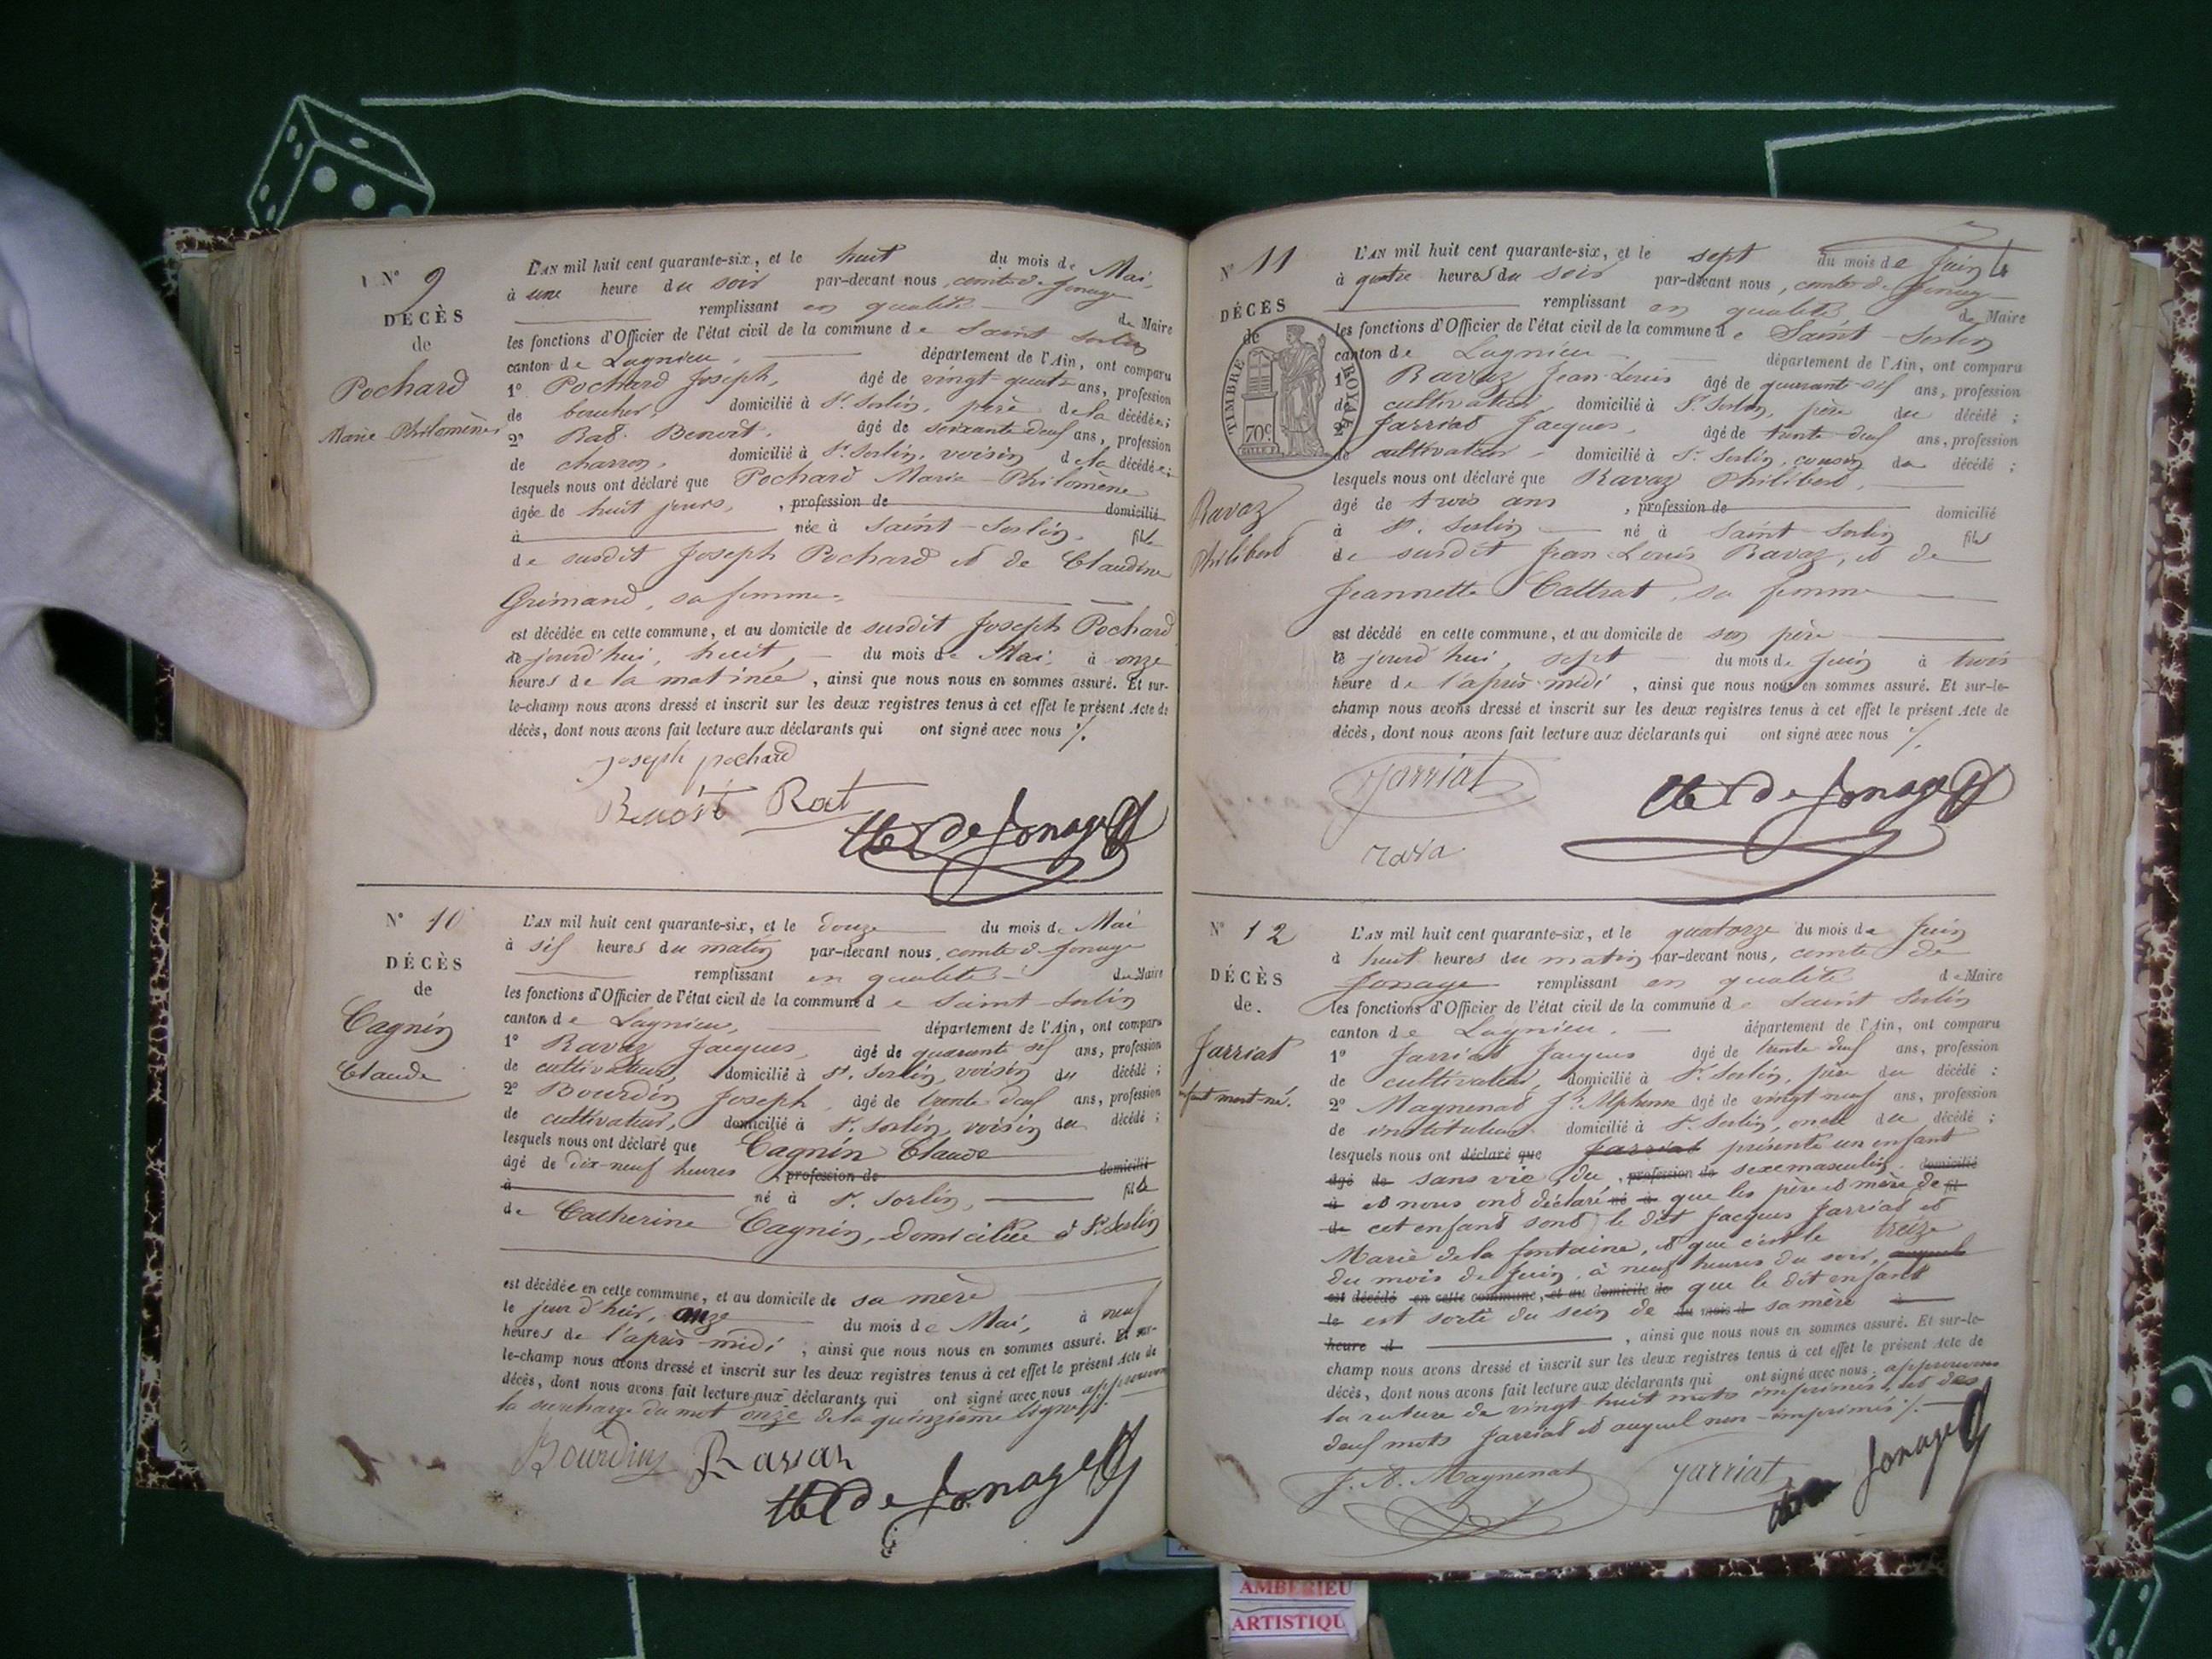 N° 9
DÉCÈS
de
Pochard
Marie Philomène
L'AN mil huit cent quarante-six, et le huit du mois de Mai,
à une heure du soir par-devant nous, comte de Jonage
remplissant en qualité de Maire
les fonctions d'Officier de l'état civil de la commune de Saint Sorlin
canton de Lagnieu, département de l'Ain, ont comparu
1° Pochard Joseph, âgé de vingt-quatre ans, profession
de boucher, domicilié à St. Sorlin, père de la décédée;
2° Rat Benoit, âgé de soixante deux ans, profession
de charron, domicilié à St. Sorlin, voisin de la décédée;
lesquels nous ont déclaré que Pochard Marie-Philomène
âgée de huit jours, , profession de domicilié
à née à Saint-Sorlin, fille
de susdit Joseph Pochard et de Claudine
Grimand, sa femme,
est décédée en cette commune, et au domicile de susdit Joseph Pochard
le jourd'hui, huit, du mois de Mai, à onze
heures de la matinée, ainsi que nous nous en sommes assuré. Et sur-
le-champ nous avons dressé et inscrit sur les deux registres tenus à cet effet le présent Acte de
décès, dont nous avons fait lecture aux déclarants qui ont signé avec nous ./.
Joseph pochard
Benoit Rat
Cte de Jonage
N° 10
DÉCÈS
de
Cagnin
Claude
L'AN mil huit cent quarante-six, et le douze du mois de Mai
à six heures du matin par-devant nous, comte de Jonage
remplissant en qualité de Maire
les fonctions d'Officier de l'état civil de la commune de Saint-Sorlin
canton de Lagnieu, département de l'Ain, ont comparu
1° Ravaz Jacques, âgé de quarante six ans, profession
de cultivateur, domicilié à St. Sorlin, voisin du décédé;
2° Bourdin Joseph, âgé de trente deux ans, profession
de cultivateur, domicilié à St. Sorlin, voisin du décédé;
lesquels nous ont déclaré que Cagnin Claude
âgé de dix-neuf heures , profession de domicilié
à né à St. Sorlin, fils
de Catherine Cagnin, domiciliée à St. Sorlin
est décédée en cette commune, et au domicile de sa mère
le jour d'hier, onze du mois de Mai, à neuf
heures de l'après-midi, ainsi que nous nous en sommes assuré. Et sur-
le-champ nous avons dressé et inscrit sur les deux registres tenus à cet effet le présent Acte de
décès, dont nous avons fait lecture aux déclarants qui ont signé avec nous approuvons
la surcharge du mot onze de la quinzième ligne ./.
Bourdin Ravaz
Cte de Jonage
N° 11
DÉCÈS
de
TIMBRE ROYAL
70c
Ravaz
Philibert
L'AN mil huit cent quarante-six, et le sept du mois de Juin
à quatre heures du soir par-devant nous, comte de Jonage
remplissant en qualité de Maire
les fonctions d'Officier de l'état civil de la commune de Saint-Sorlin
canton de Lagnieu département de l'Ain, ont comparu
1° Ravaz Jean-Louis âgé de quarante-six ans, profession
de cultivateur, domicilié à St. Sorlin, père du décédé;
2° Jarriat Jacques, âgé de trente deux ans, profession
de cultivateur, domicilié à St. Sorlin, cousin du décédé;
lesquels nous ont déclaré que Ravaz Philibert,
âgé de trois ans , profession de domicilié
à St. Sorlin né à Saint-Sorlin fils
de susdit Jean-Louis Ravaz, et de
Jeannette sa femme
est décédé en cette commune, et au domicile de son père
le jourd'hui, sept du mois de Juin à trois
heure de l'après-midi, ainsi que nous nous en sommes assuré. Et sur-le-
champ nous avons dressé et inscrit sur les deux registres tenus à cet effet le présent Acte de
décès, dont nous avons fait lecture aux déclarants qui ont signé avec nous ./.
Jarriat
Cte de Jonage
rava
N° 12
DÉCÈS
de.
Jarriat
enfant mort-né.
L'AN mil huit cent quarante-six, et le quatorze du mois de Juin
à huit heures du matin par-devant nous, comte de
Jonage remplissant en qualité de Maire
les fonctions d'Officier de l'état civil de la commune de Saint Sorlin
canton de Lagnieu. département de l'Ain, ont comparu
1° Jarriat Jacques âgé de trente deux ans, profession
de cultivateur, domicilié à St. Sorlin, père du décédé;
2° Magnenat Jn. Alphonse âgé de vingt neuf ans, profession
de instituteur domicilié à St. Sorlin, oncle du décédé;
lesquels nous ont déclaré que Jarriat présenté un enfant
âgé de sans vie, du , profession de sexe masculin domicilié
à et nous ont déclaré né à que les père et mère de fil
de cet enfant sont le dit Jacques Jarriat et
Marie de la fontaine, et que c'est le treize
du mois de Juin, à neuf heures du soir, auquel
est décédé en cette commune, et au domicile de que le dit enfant
le est sorti du sein de du mois d sa mère à
heure d , ainsi que nous nous en sommes assuré. Et sur-le-
champ nous avons dressé et inscrit sur les deux registres tenus à cet effet le présent Acte de
décès, dont nous avons fait lecture aux déclarants qui ont signé avec nous. approuvons
la rature de vingt-huit mots imprimés, et des
deux mots Jarriat et auquel non-imprimés ./.
J. A. Magnenat Jarriat Jonage
AMBERIEU
ARTISTIQU